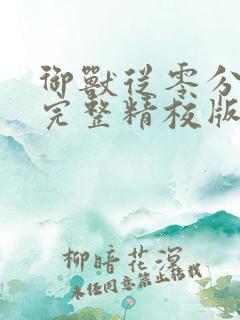 御獸從零分
完整精校版
柳暗花溟
未经同意禁止转载